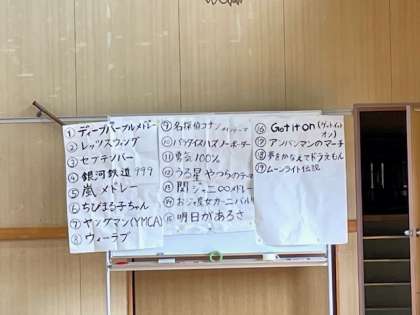 ① ディープパープルメドレー
② レッツスウィング
③ セプテンバー
④ 銀河鉄道999
⑤ 嵐メドレー
⑥ ちびまる子ちゃん
⑦ ヤングマン(YMCA)
⑧ ウィーラブ
⑨ 名探偵コナン
⑩ パラダイスハズノーボーダー
⑪ 勇気100%
⑫ うる星やつらのテーマ
⑬ 関ジャニ∞メドレー
⑭ おジャ魔女カーニバル
⑮ 明日があるさ
⑯ Got it on (ゲットイット
オン)
⑰ アンパンマンのマーチ
⑱ 夢をかなえてドラえもん
⑲ ムーンライト伝説